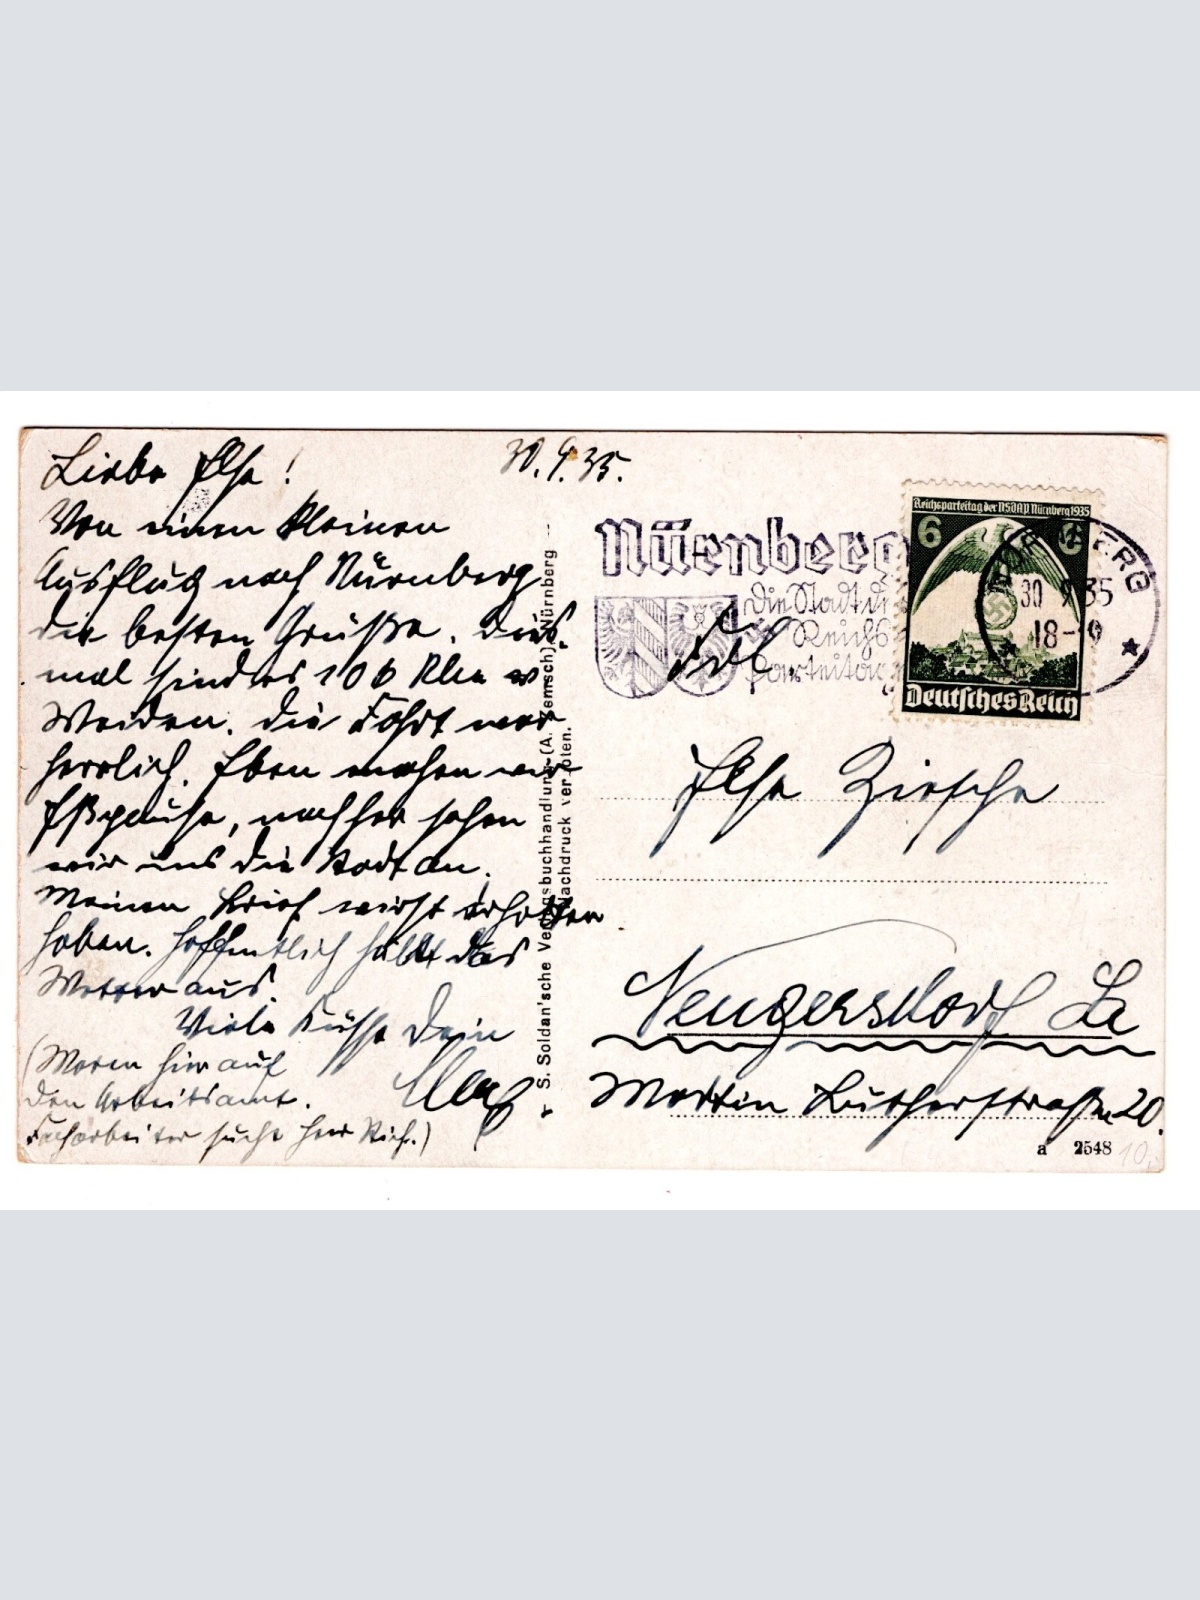 30.9.35.
Liebe Ilse!
Von einem kleinen
Ausflug nach Nürnberg
die besten Grüße. Dies-
mal sind es 106 Klm v.
Weiden. Die Fahrt war
herrlich. Eben machen wir
Eßpause, nachher sehen
wir uns die Stadt an.
Meinen Brief wirst erhalten
haben. Hoffentlich hält das
Wetter aus.
Viele Küsse Dein
(Waren hier auf
den Arbeitsamt.
Facharbeiter sucht hier)
S. Soldan'sche Verlagsbuchhandlung (A. Zemsch) Nürnberg
Nachdruck verboten.
Nürnberg
die Stadt der
Reichs
parteitage
Reichsparteitag der NSDAP Nürnberg 1935
6 6
Deutsches Reich
NÜRNBERG
30 9 35
18-19
Frl.
Ilse Zirsche
Neugersdorf Sa
Martin Lutherstraße 20.
a 2548
10,